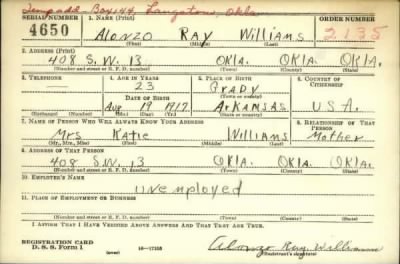 Temp add. Box 144, Langston, Okla
SERIAL NUMBER 1. NAME (Print) ORDER NUMBER
4650 Alonzo Ray Williams 2135
(First) (Middle) (Last)
2. ADDRESS (Print)
408 S.W. 13 OKLA. OKLA. OKLA.
(Number and street or R. F. D. number) (Town) (County) (State)
3. TELEPHONE 4. AGE IN YEARS 5. PLACE OF BIRTH 6. COUNTRY OF CITIZENSHIP
— 23 Grady
DATE OF BIRTH (Town or county)
Aug 19 1917 Arkansas U S A.
(Exchange) (Number) (Mo.) (Day) (Yr.) (State or country)
7. NAME OF PERSON WHO WILL ALWAYS KNOW YOUR ADDRESS 8. RELATIONSHIP OF THAT PERSON
Mrs Katie Williams Mother
(Mr., Mrs., Miss) (First) (Middle) (Last)
9. ADDRESS OF THAT PERSON
408 S.W. 13 OKLA. OKLA. OKLA.
(Number and street or R. F. D. number) (Town) (County) (State)
10. EMPLOYER'S NAME
unemployed
11. PLACE OF EMPLOYMENT OR BUSINESS
(Number and street or R. F. D. number) (Town) (County) (State)
I AFFIRM THAT I HAVE VERIFIED ABOVE ANSWERS AND THAT THEY ARE TRUE.
REGISTRATION CARD
D. S. S. Form 1 16—17105 Alonzo Ray Williams
(Registrant's signature)